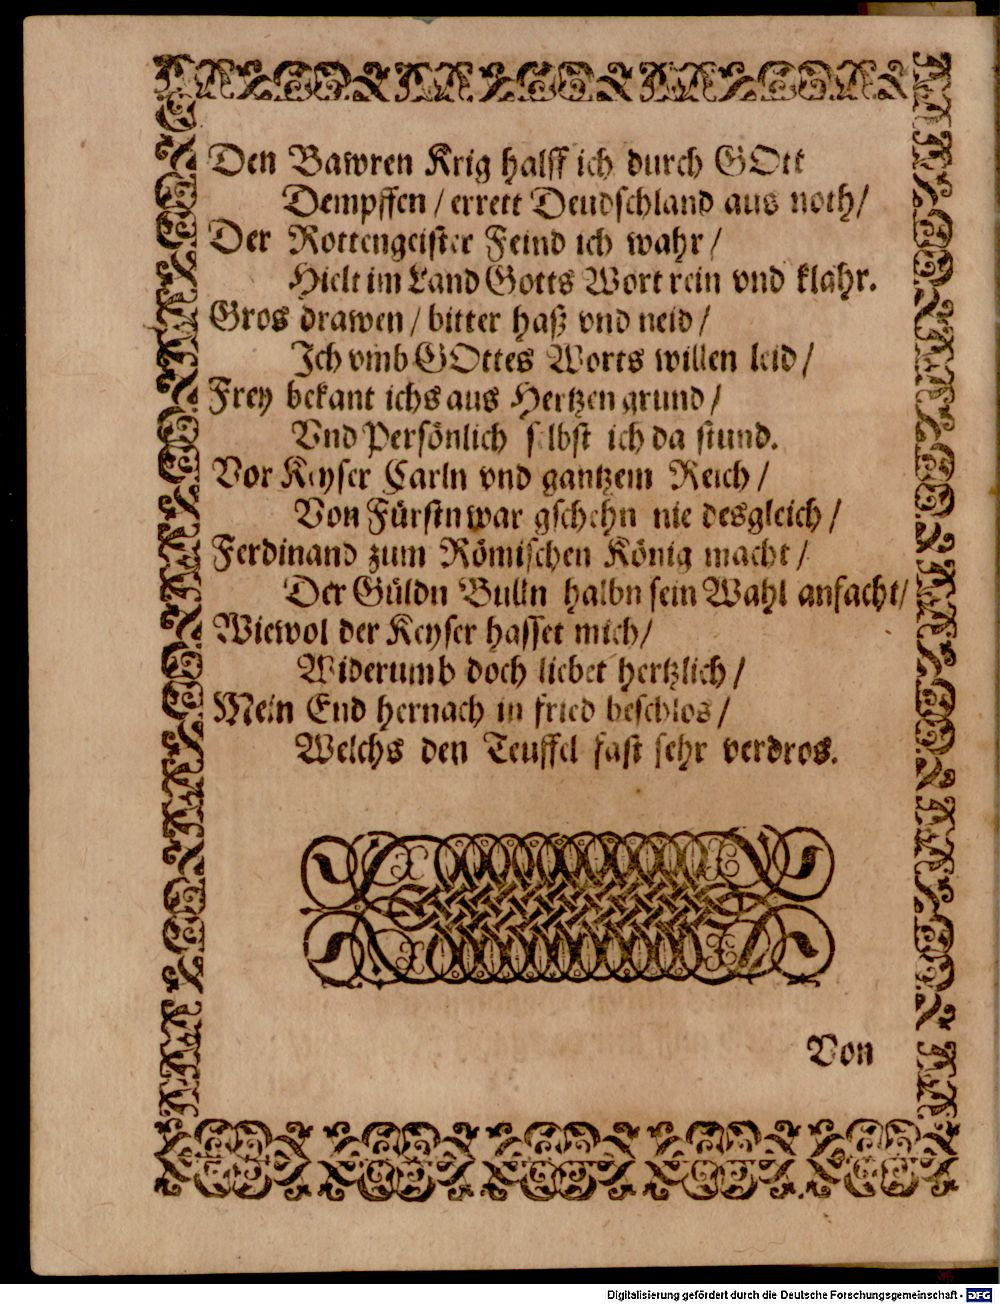 Den Bawren Krig halff ich durch GOtt
Dempffen / errett Deudschland aus noth /
Der Rottengeister Feind ich wahr /
Hielt im Land Gotts Wort rein vnd klahr.
Gros drawen / bitter haß vnd neid /
Ich vmb GOttes Worts willen leid /
Frey bekant ichs aus Hertzen grund /
Vnd Persönlich selbst ich da stund.
Vor Keyser Carln vnd gantzem Reich /
Von Fürstn war gschehn nie desgleich /
Ferdinand zum Römischen König macht /
Der Güldn Bulln halbn sein Wahl anfacht /
Wiewol der Keyser hasset mich /
Widerumb doch liebet hertzlich /
Mein End hernach in fried beschlos /
Welchs den Teuffel fast sehr verdros.
Von
Digitalisierung gefördert durch die Deutsche Forschungsgemeinschaft - DFG